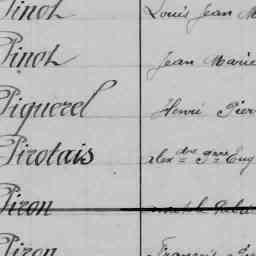 Pinot Louis Jean M
Pinot Jean Marie
Piquerel Henri Pier
Pirotais Alexdre Eug
Piron
Piron François